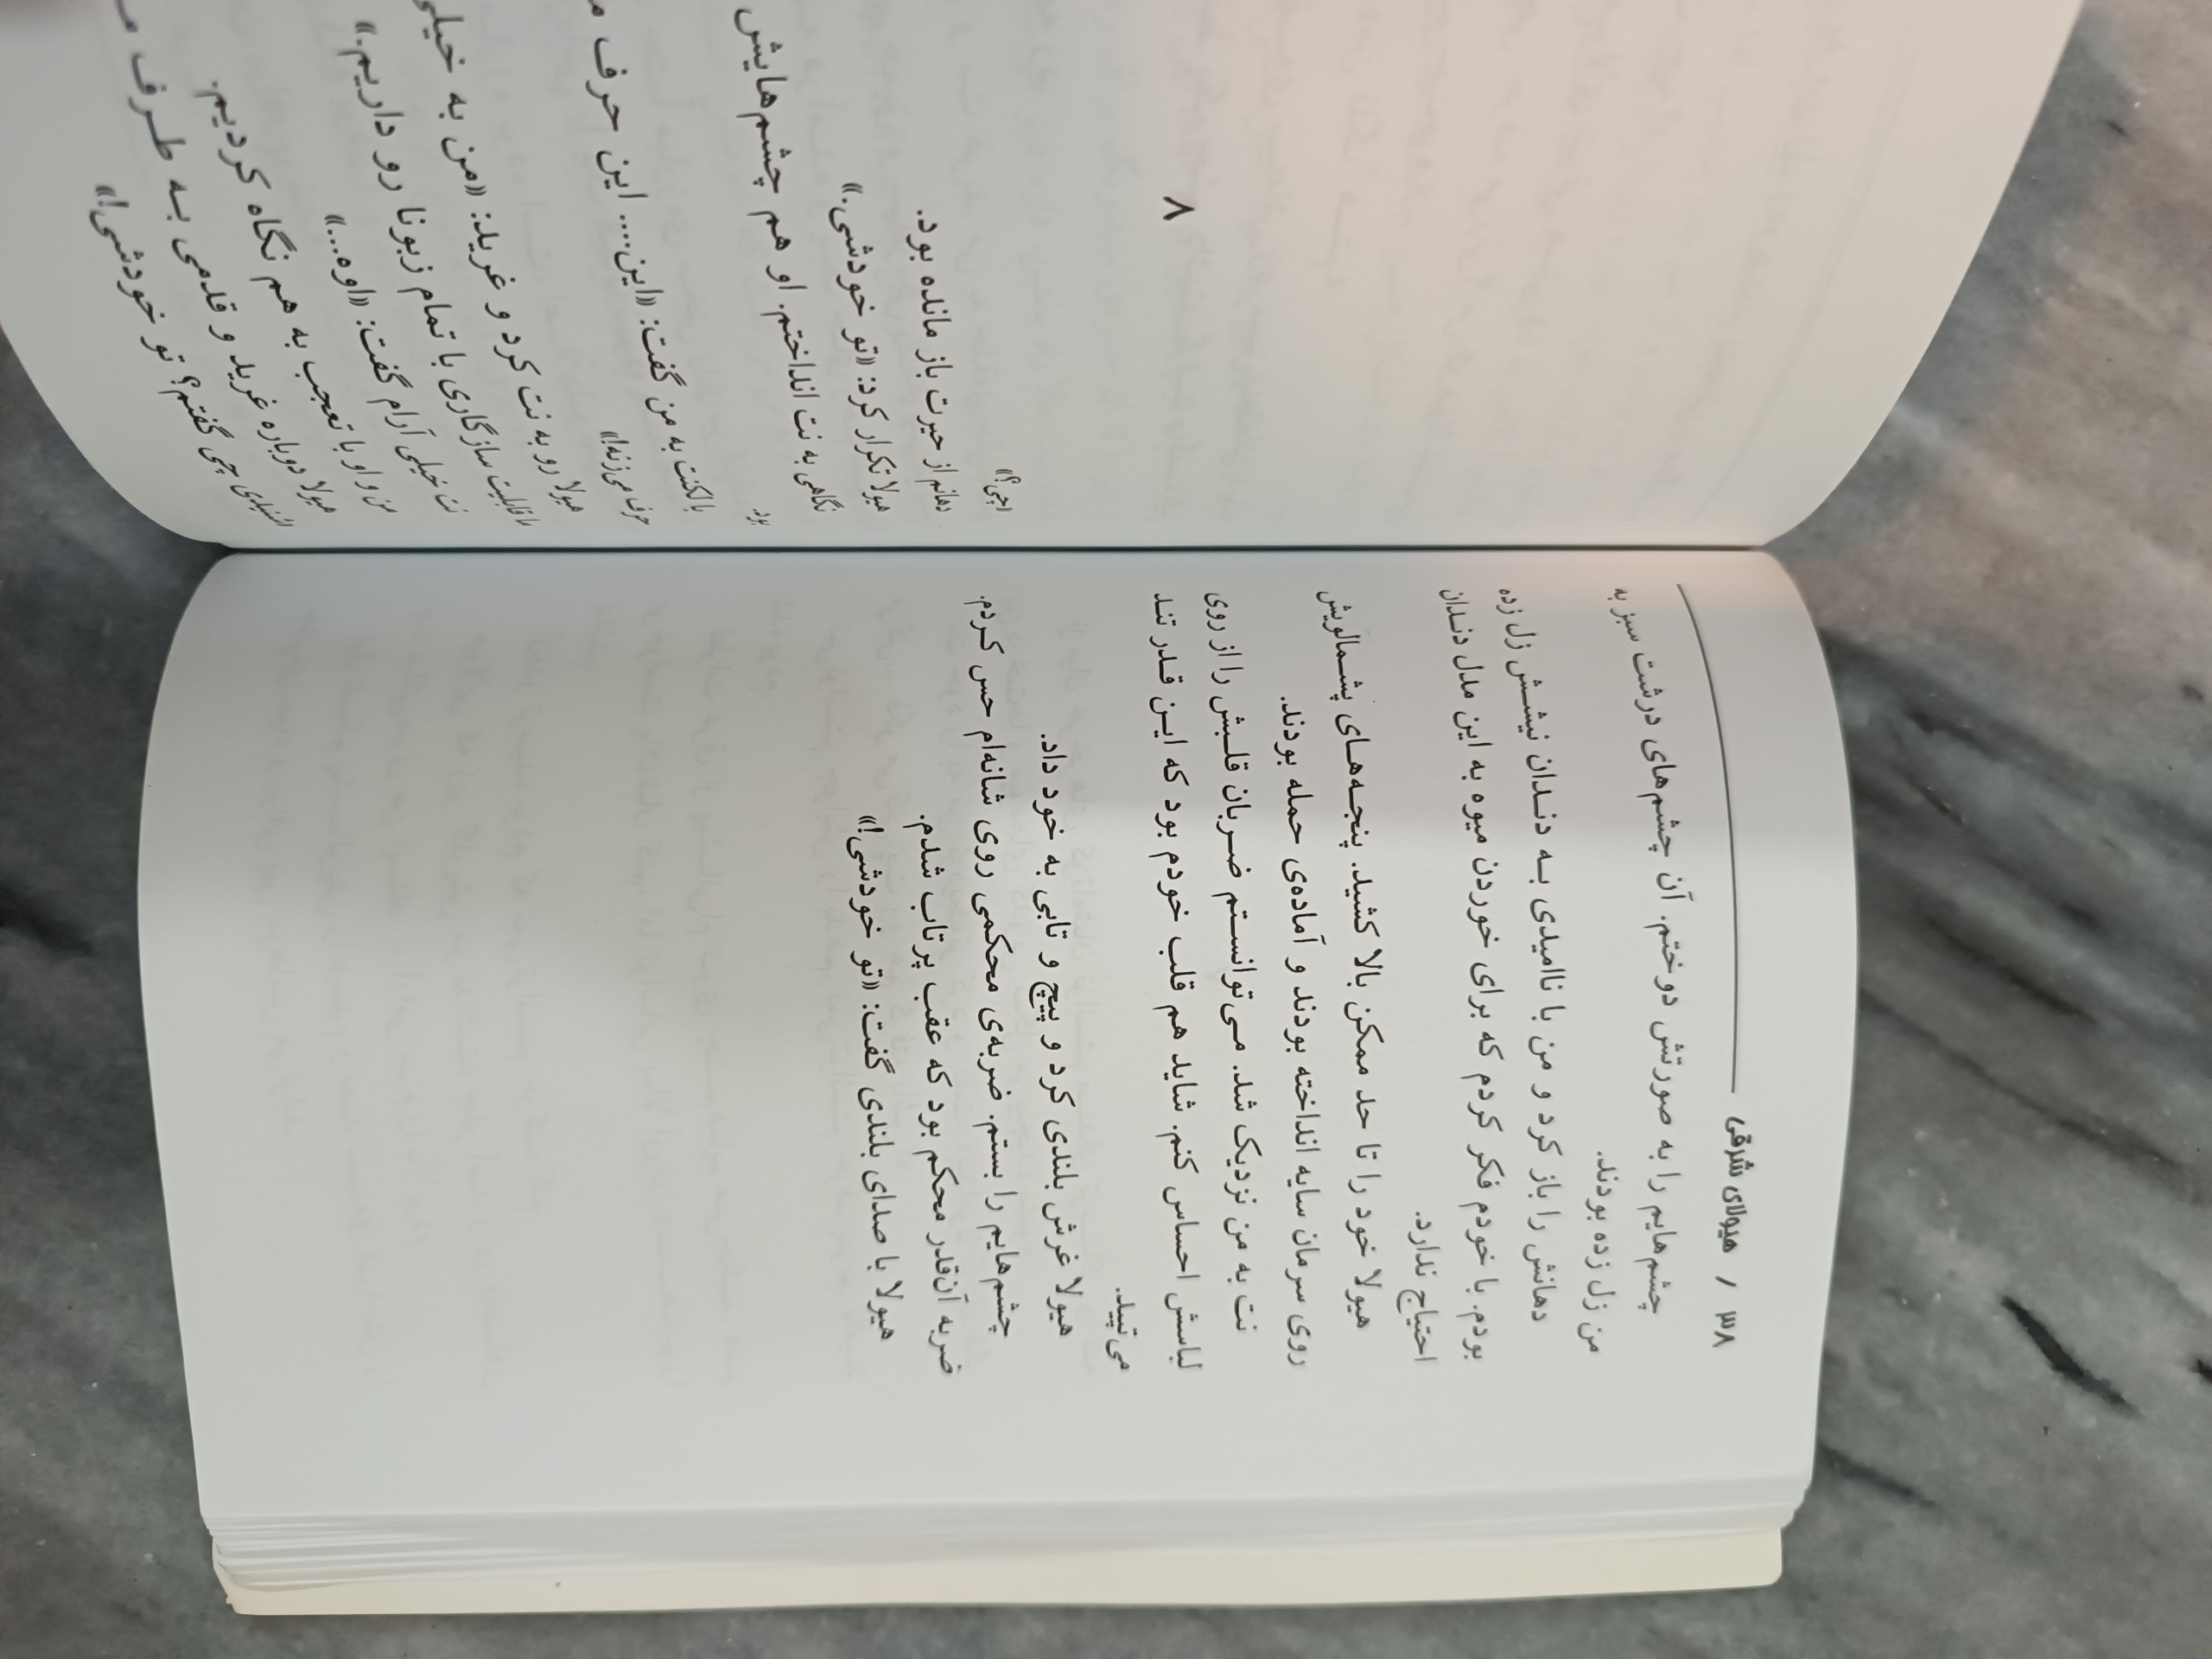 ۳۸ / هیولای شرقی
چشم‌هایم را به صورتش دوختم. آن چشم‌های درشت سبز به
من زل زده بودند.
دهانش را باز کرد و من با ناامیدی به دندان نیشش زل زده
بودم. با خودم فکر کردم که برای خوردن میوه به این مدل دندان
احتیاج ندارد.
هیولا خود را تا حد ممکن بالا کشید. پنجه‌های پشمالویش
روی سرمان سایه انداخته بودند و آماده‌ی حمله بودند.
نت به من نزدیک شد. می‌توانستم ضربان قلبش را از روی
لباسش احساس کنم. شاید هم قلب خودم بود که این قدر تند
می‌تپید.
هیولا غرش بلندی کرد و پیچ و تابی به خود داد.
چشم‌هایم را بستم. ضربه‌ی محکمی روی شانه‌ام حس کردم.
ضربه آن‌قدر محکم بود که عقب پرتاب شدم.
هیولا با صدای بلندی گفت: «تو خودشی!»
۸
«چی؟»
دهانم از حیرت باز مانده بود.
هیولا تکرار کرد: «تو خودشی.»
نگاهی به نت انداختم. او هم چشم‌هایش
بود.
با لکنت به من گفت: «این.... این حرف
حرف می‌زنه!»
هیولا رو به نت کرد و غرید: «من به خیلی
قابلیت سازگاری با تمام زبونا رو داریم.»
نت خیلی آرام گفت: «اوه...»
من و او با تعجب به هم نگاه کردیم.
هیولا دوباره غرید و قدمی به طرف
«شنیدی چی گفتم؟ تو خودشی!»